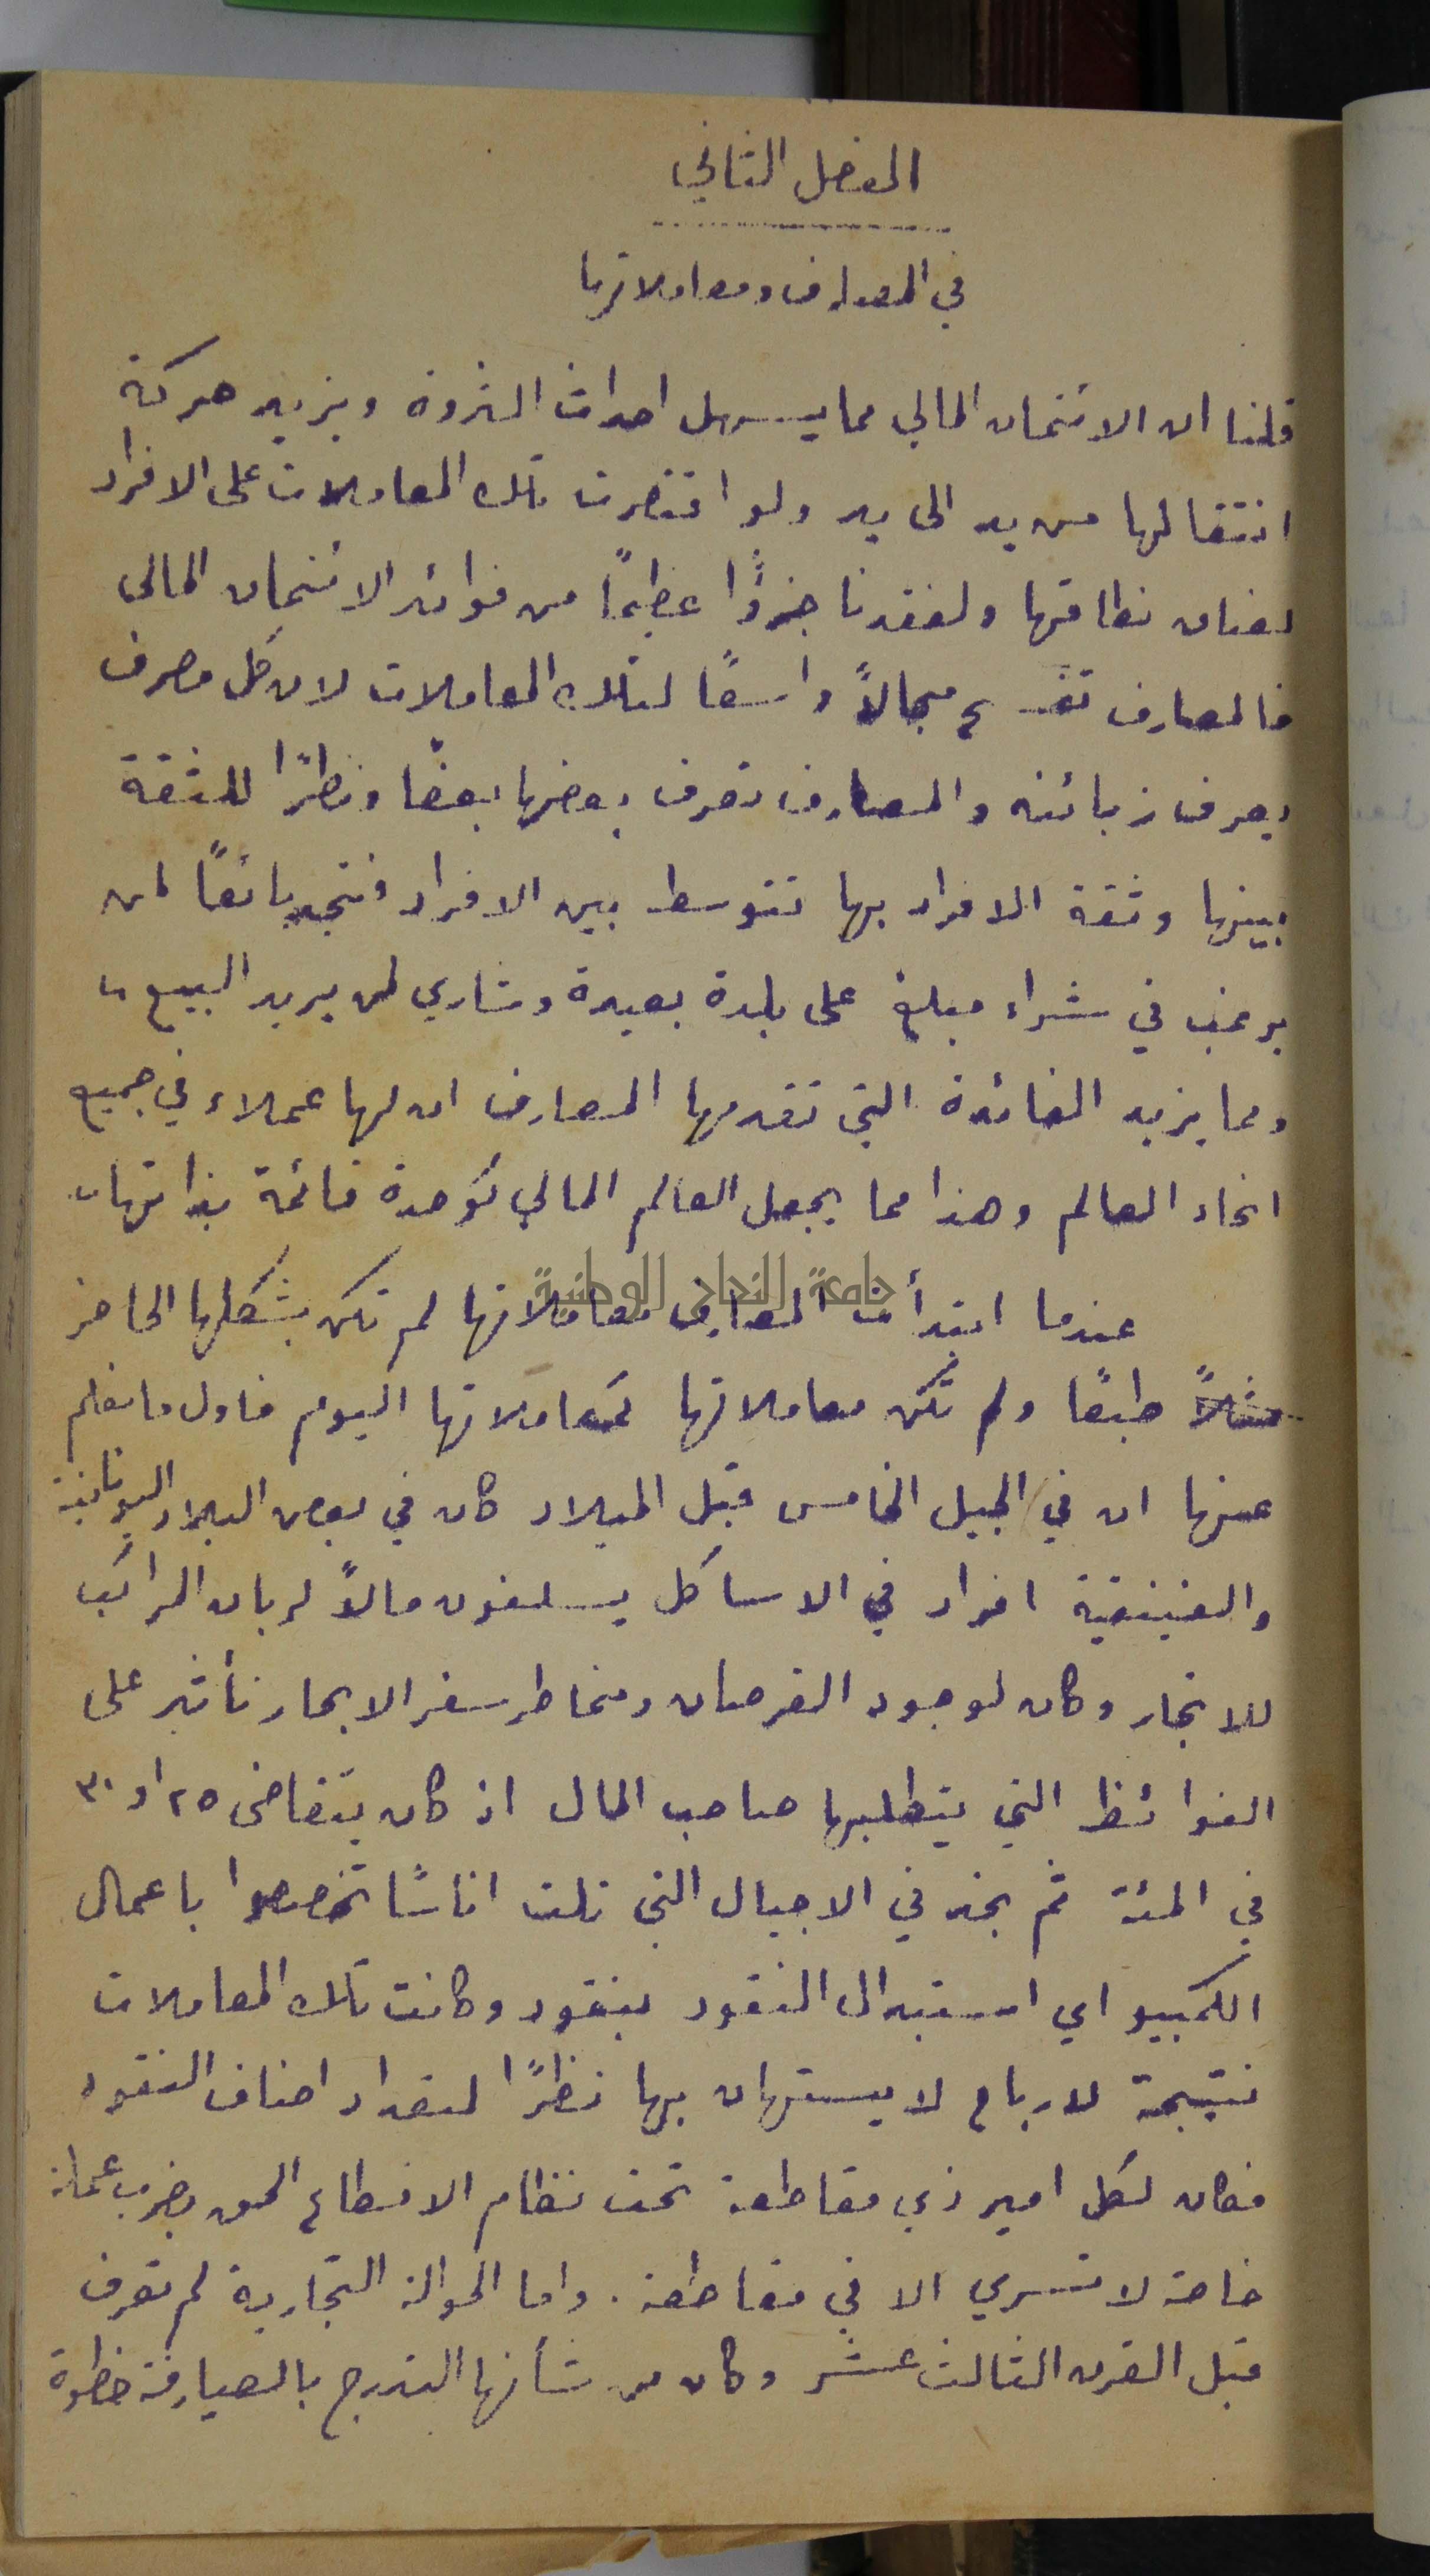 الفصل الثاني
في المصارف ومعاملاتها
قلنا ان الائتمان المالي مما يسهل احداث الثروة ويزيد حركة
انتقالها من يد الى يد ولو اقتصرت تلك المعاملات على الافراد
لضاق نطاقها ولفقدنا جزءًا عظيمًا من فوائد الائتمان المالي
فالمصارف تفسح مجالاً واسعًا لتلك المعاملات لان كل مصرف
يعرف زبائنه والمصارف تعرف بعضها بعضًا ونظرًا للثقة
بينها وثقة الافراد بها تتوسط بين الافراد فتجد بائعًا لمن
يرغب في شراء مبلغ على بلدة بعيدة وشاري لمن يريد البيع
ومما يزيد الفائدة التي تقدمها المصارف ان لها عملاء في جميع
انحاء العالم وهذا مما يجعل العالم المالي كوحدة قائمة بذاتها
جامعة النجاح الوطنية
عندما ابتدأت المصارف معاملاتها لم تكن بشكلها الحاضر
مثلاً طبعًا ولم تكن معاملاتها كمعاملاتها اليوم فاول ما نعلم
عنها ان في الجيل الخامس قبل الميلاد كان في بعض البلاد اليونانية
والفينيقية افراد في الاساكل يسلفون مالاً لربان المراكب
للاتجار وكان لوجود القرصان ومخاطر سفر الابحار تأثير على
الفوائظ التي يتطلبها صاحب المال اذ كان يتقاضى ٢٥ او ٣٠
في المئة ثم نجد في الاجيال التي تلت اناسًا تخصصوا باعمال
الكمبيو اي استبدال النقود بنقود وكانت تلك المعاملات
نتيجة لارباح لا يستهان بها نظرًا لتعداد اصناف النقود
فكان لكل امير ذي مقاطعة تحت نظام الاقطاع الحق بضرب عملة
خاصة لا تسري الا في مقاطعة. واما الحوالة التجارية لم تعرف
قبل القرن الثالث عشر وكان من شأنها التدرج بالصيارفة خطوة